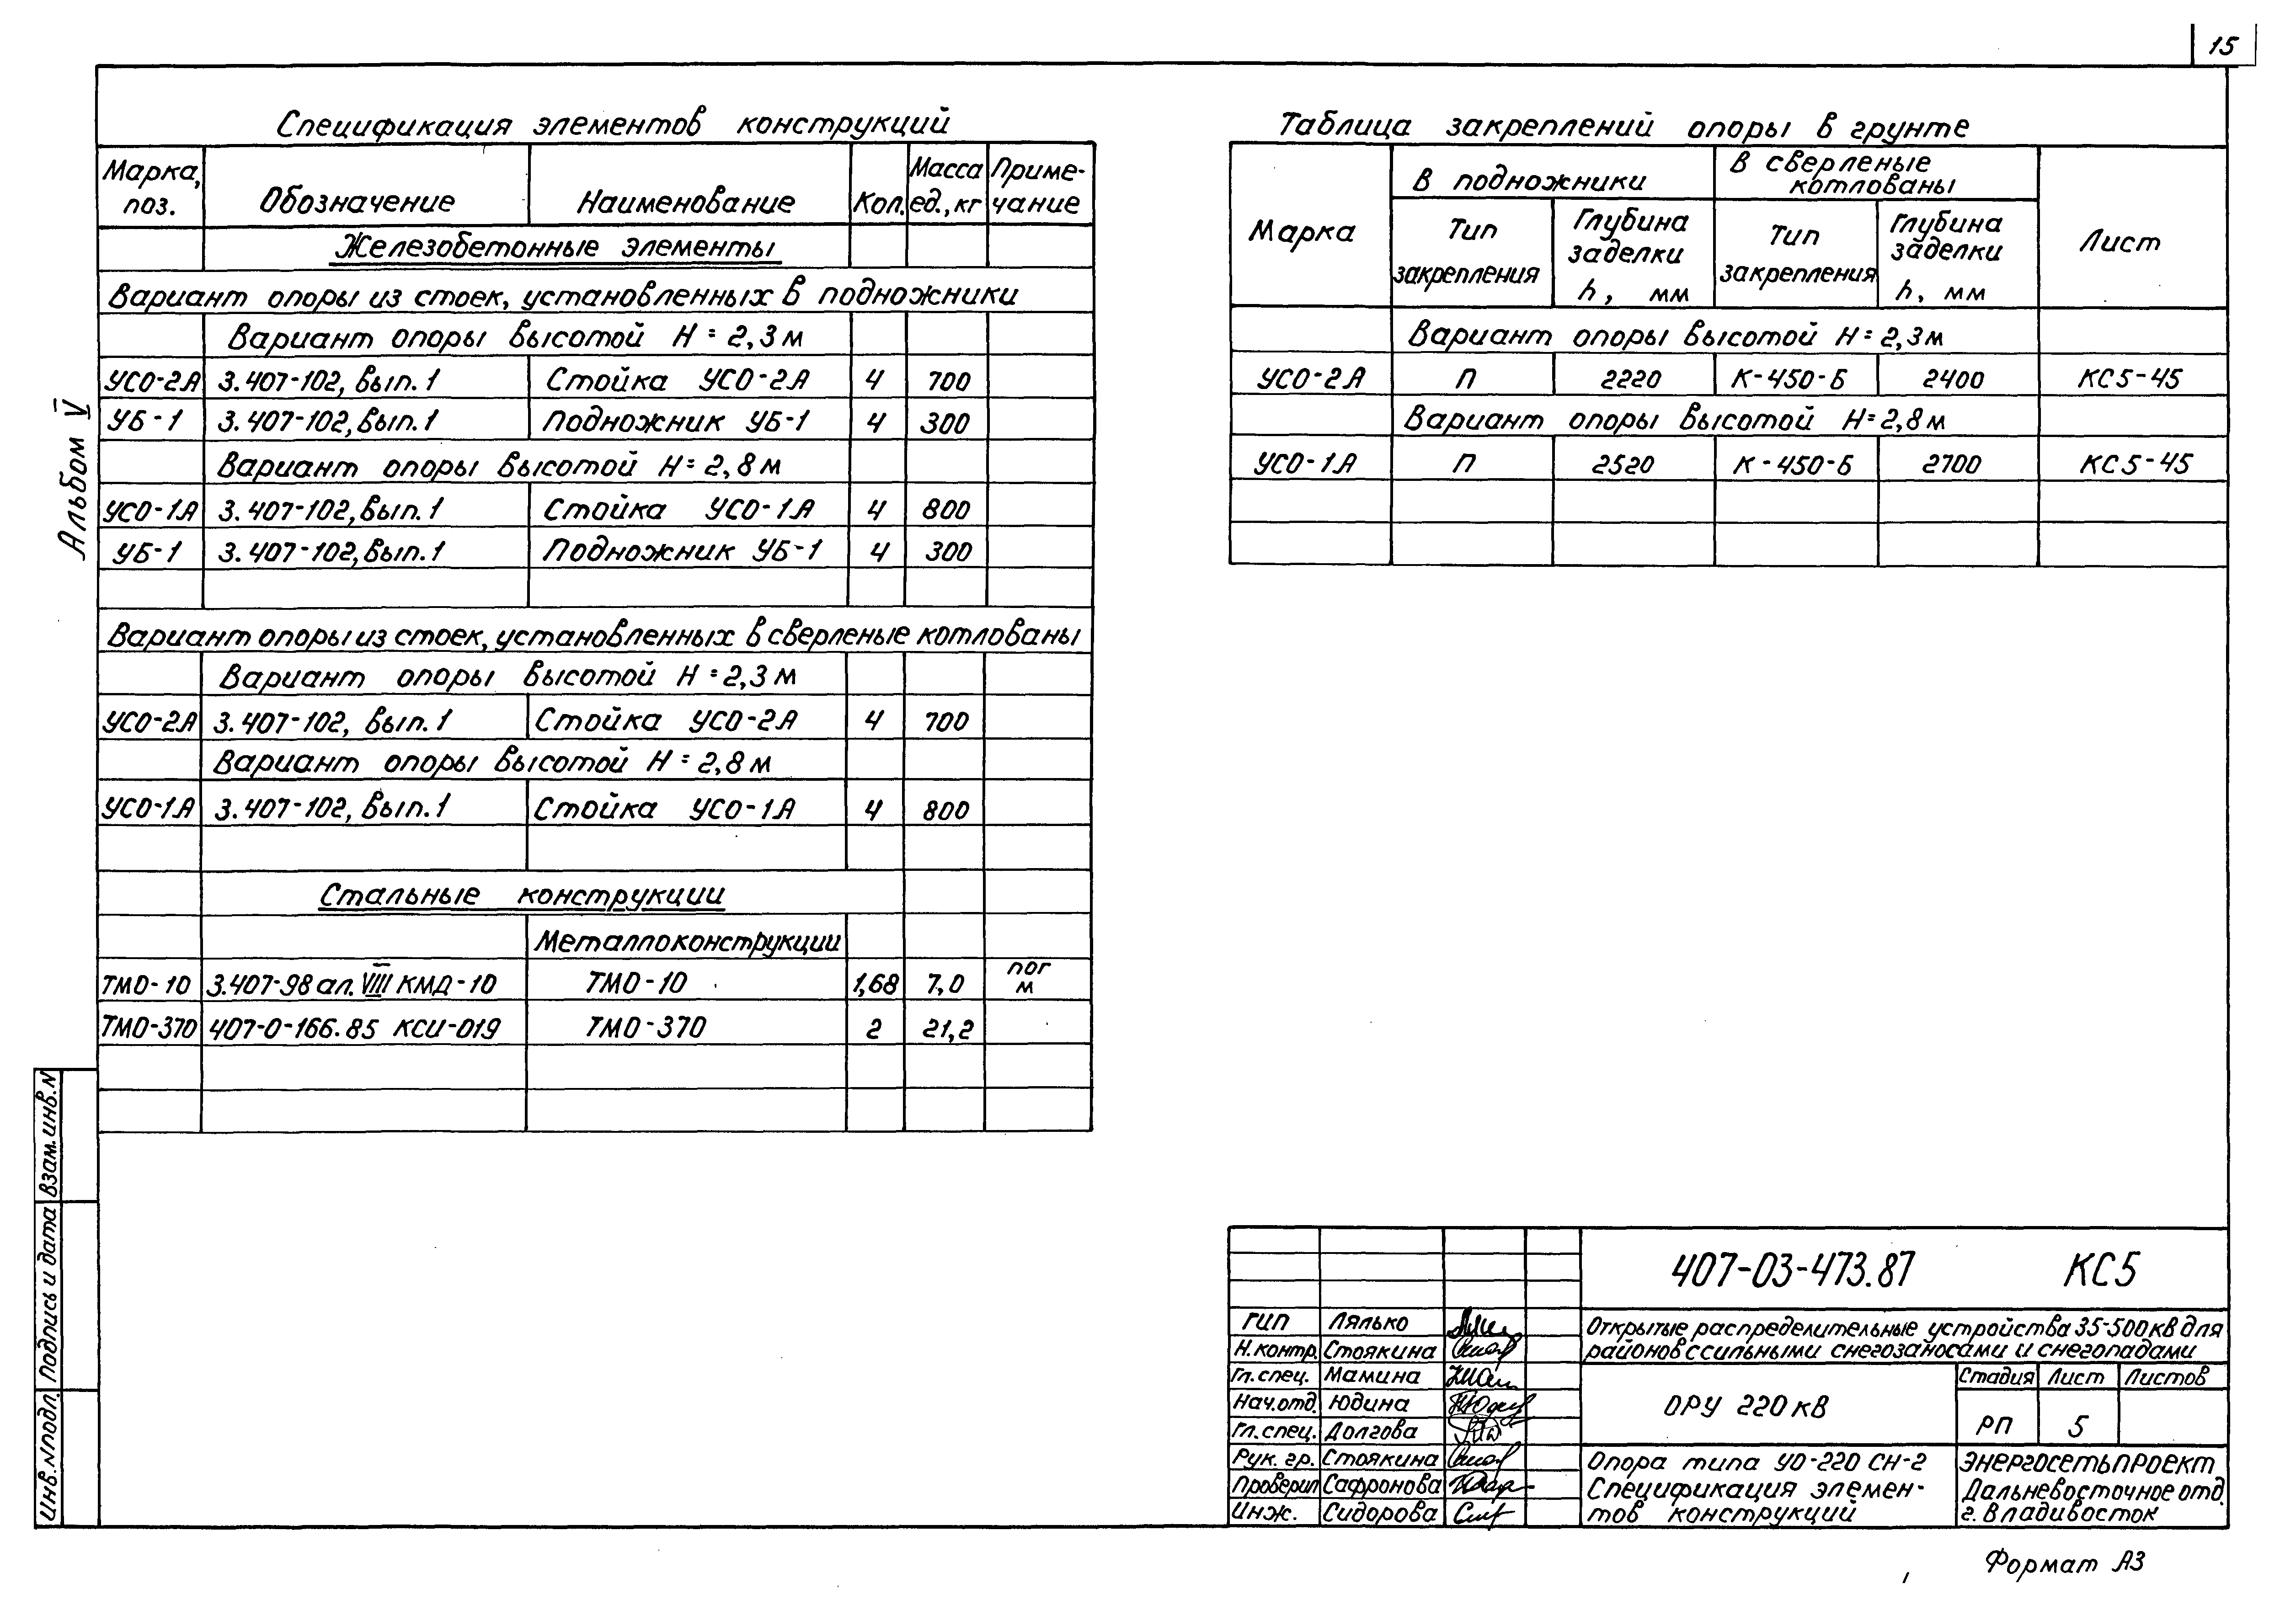 15
Альбом V
Спецификация элементов конструкций
Марка, поз. Обозначение Наименование Кол. Масса ед., кг Приме-чание
Железобетонные элементы
Вариант опоры из стоек, установленных в подножники
Вариант опоры высотой Н = 2,3 м
УСО-2А 3.407-102, вып. 1 Стойка УСО-2А 4 700
УБ-1 3.407-102, вып. 1 Подножник УБ-1 4 300
Вариант опоры высотой Н = 2,8 м
УСО-1А 3.407-102, вып. 1 Стойка УСО-1А 4 800
УБ-1 3.407-102, вып. 1 Подножник УБ-1 4 300
Вариант опоры из стоек, установленных в сверленые котлованы
Вариант опоры высотой Н = 2,3 м
УСО-2А 3.407-102, вып. 1 Стойка УСО-2А 4 700
Вариант опоры высотой Н = 2,8 м
УСО-1А 3.407-102, вып. 1 Стойка УСО-1А 4 800
Стальные конструкции
Металлоконструкции
ТМО-10 3.407-98 ал. VIII КМД-10 ТМО-10 1,68 7,0 пог м
ТМО-370 407-0-166.85 КСИ-019 ТМО-370 2 21,2
Таблица закреплений опоры в грунте
Марка В подножники В сверленые котлованы Лист
Тип закрепления Глубина заделки h, мм Тип закрепления Глубина заделки h, мм
Вариант опоры высотой Н = 2,3 м
УСО-2А П 2220 К-450-Б 2400 КС5-45
Вариант опоры высотой Н = 2,8 м
УСО-1А П 2520 К-450-Б 2700 КС5-45
Взам. инв. N
Подпись и дата
Инв. N подл.
407-03-473.87 КС5
ГИП Лялько
Н. контр. Стоякина
Гл. спец. Мамина
Нач. отд. Юдина
Гл. спец. Долгова
Рук. гр. Стоякина
Проверил Сафронова
Инж. Сидорова
Открытые распределительные устройства 35-500 кв для
районов с сильными снегозаносами и снегопадами
ОРУ 220 кВ
Стадия Лист Листов
РП 5
Опора типа УО-220 СН-2
Спецификация элемен-
тов конструкций
Энергосетьпроект
Дальневосточное отд.
г. Владивосток
Формат А3